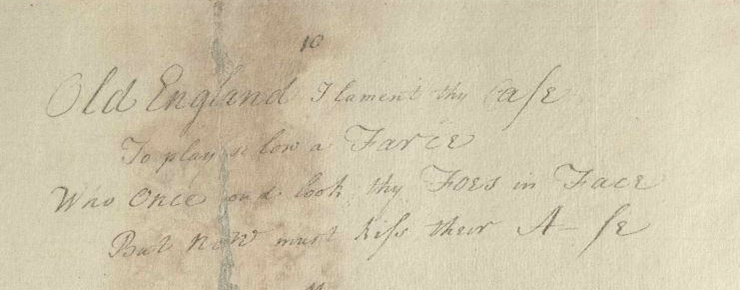 10
Old England I lament thy Caſe
To play so low a Farce
Who Once cou'd look thy Foes in Face
But now must kiſs their A—ſe